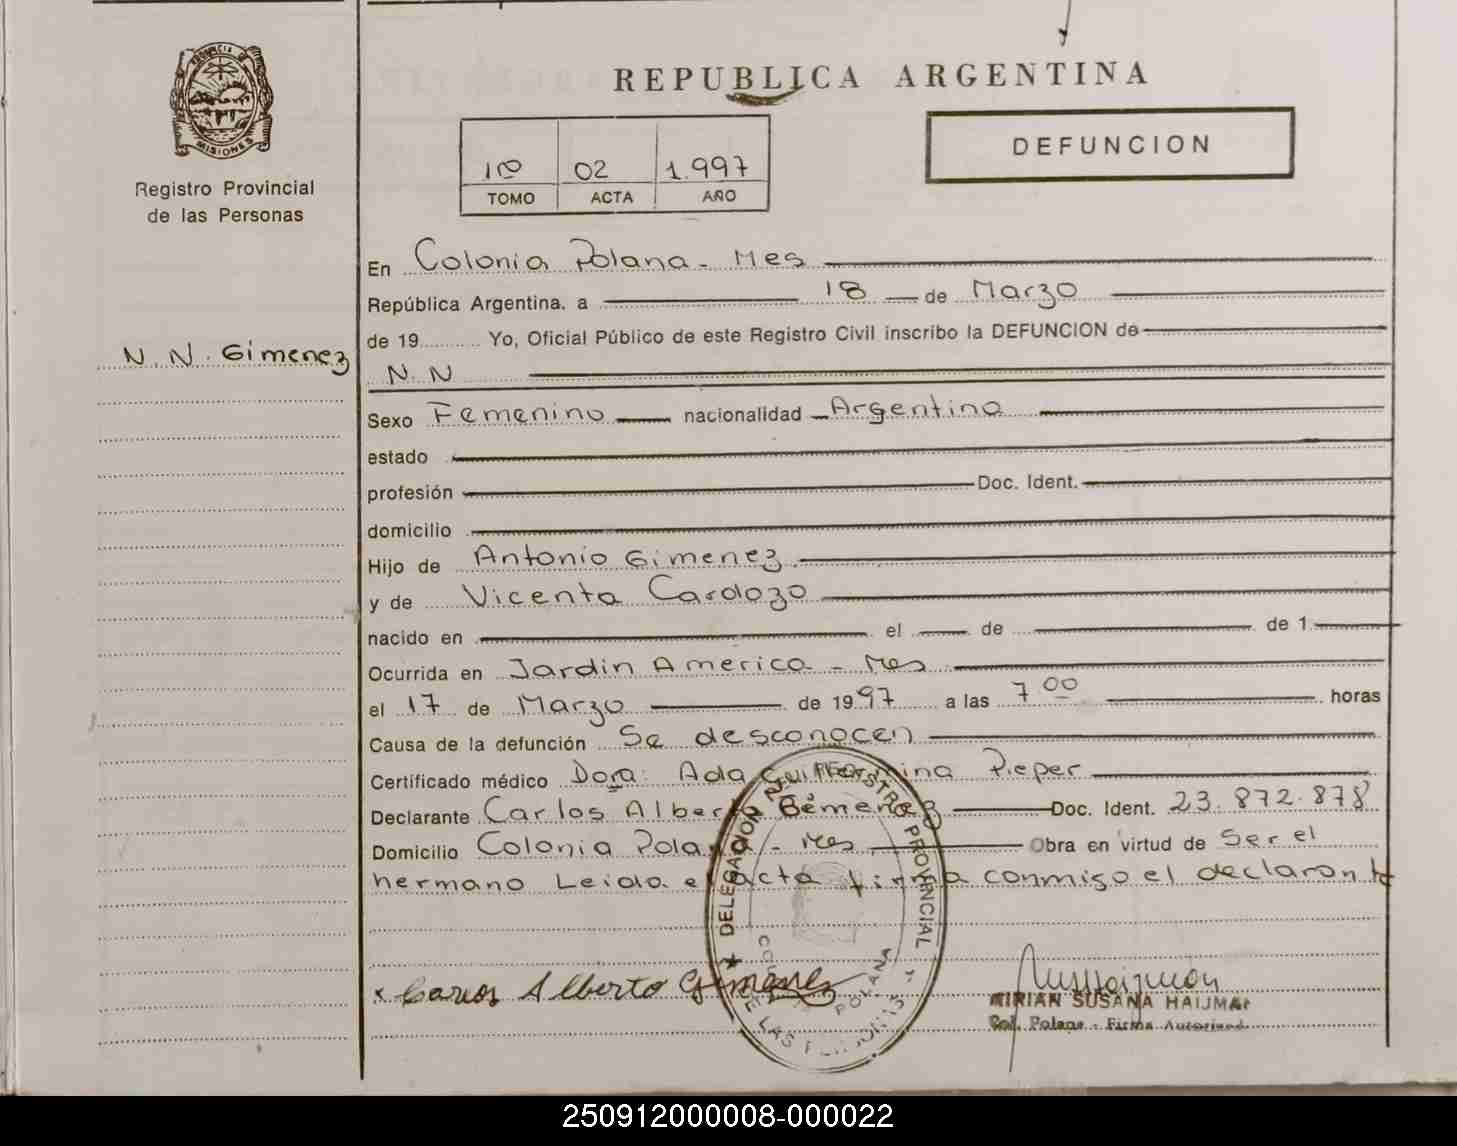 PROVINCIA DE
MISIONES
Registro Provincial
de las Personas
N. N. Gimenez
REPUBLICA ARGENTINA
DEFUNCION
1º 02 1.997
TOMO ACTA AÑO
En Colonia Polana - Mes
República Argentina. a 18 de Marzo
de 19 Yo, Oficial Público de este Registro Civil inscribo la DEFUNCION de
N. N
Sexo Femenino nacionalidad Argentina
estado
profesión Doc. Ident.
domicilio
Hijo de Antonio Gimenez
y de Vicenta Cardozo
nacido en el de de 1
Ocurrida en Jardin America - Mes
el 17 de Marzo de 1997 a las 7 00 horas
Causa de la defunción Se desconocen
Certificado médico Dora: Ada Guillermina Pieper
Declarante Carlos Alberto Doc. Ident. 23.872.878
Domicilio Colonia Polana - Mes Obra en virtud de Ser el
hermano Leida el acta firma conmigo el declarante
DELEGACION REGISTRO PROVINCIAL
DE LAS PERSONAS
COLONIA POLANA
x Carlos Alberto Gimenez
MIRIAN SUSANA HAIJMAN
Col. Polana - Firma Autorizada
250912000008-000022